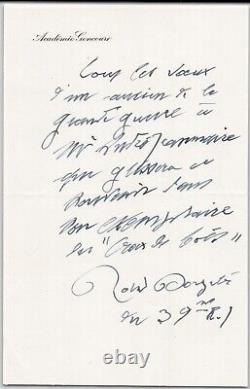 Académie Goncourt
Tous les vœux
d'un ancien de la
grande guerre à
Mr André Jeanmaire
qui glissera ce
souvenir dans
son exemplaire
des "Croix de bois"
Roland Dorgelès
du 39me R.I
ebay.com